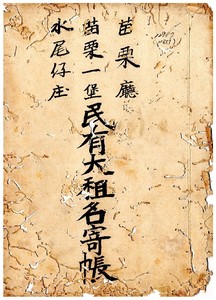 苗栗廳
苗栗一堡
水尾仔庄
民有大租名寄帳